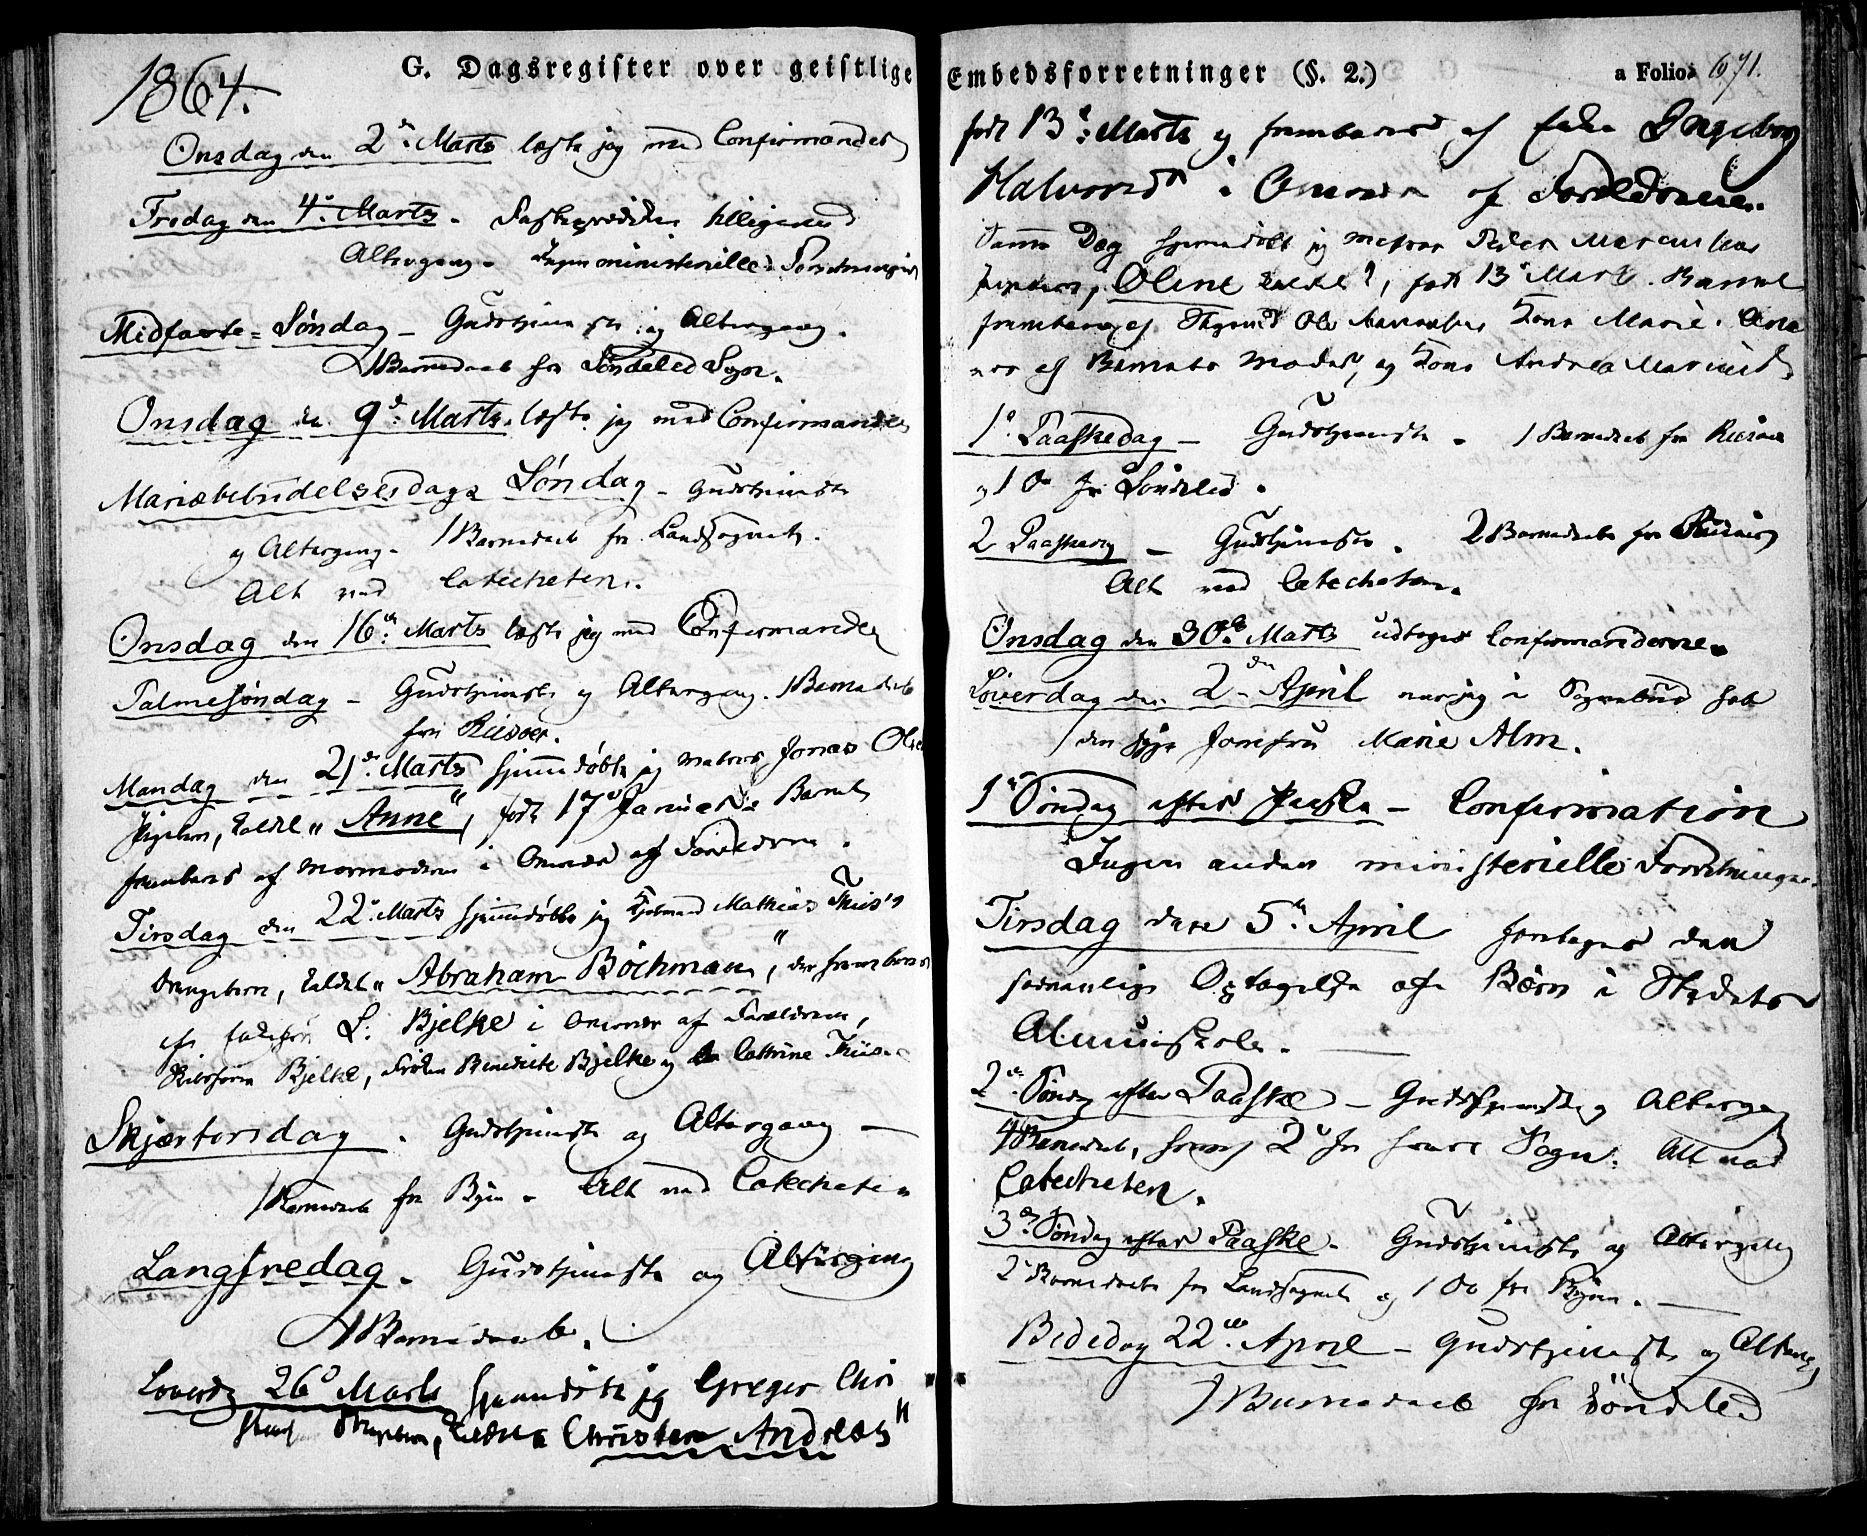 1864.
G. Dagsregister over geistlige
Onsdag den 2den Marts læste jeg med Confirmander
Fredag den 4. Marts - Fasteprædiken tilligemed
Altergang - Ingen ministerielle Forretninger
Midfaste-Søndag - Gudstjeneste og Altergang.
1 Barnedaab fra Søndeled Sogn.
Onsdag den 9de Marts læste jeg med Confirmander
Mariæbebudelsesdags Søndag - Gudstjeneste
og Altergang. 1 Barnedaab fra Landsognet.
Alt ved Catecheten.
Onsdag den 16de Marts læste jeg med Confirmander
Palmesøndag - Gudstjeneste og Altergang. 1 Barnedaab
fra Riisøer.
Mandag den 21de Marts hjemmedøbte jeg Jonas Olsens
Pigebarn, kaldet "Anne", født 17 Januar. Barnet
frembaaret af Mormoderen i Overvær af Forældrene.
Tirsdag den 22. Marts hjemmedøbte jeg Kjøbmand Mathias
Drengebarn, kaldet "Abraham Bøchman", der frembares
af L. Bjelke i Overvær af Forældrene,
Bjelke, Frøken Benedicte Bjelke og Cathrine
Skjærtorsdag. Gudstjeneste og Altergang -
1 Barnedaab fra Byen - Alt ved Catecheten
Langfredag. Gudstjeneste og Altergang
1 Barnedaab.
Løverdag 26de Marts hjemmedøbte jeg Gregers Chri
Drengebarn, kaldet "Christen Andreas"
Embedsforretninger (§. 2.)
a Folio 671.
født 13de Marts og frembaaret af Ingeborg
Halvorsdtr i Overvær af Forældrene.
Samme Dag hjemmedøbt jeg Matros Peder
Oline kaldet, født 13de Marts. Barnet
frembaaret af Ole Kone Marie.
af Barnets Moder, og Kone Andrea
1ste Paaskedag - Gudstjeneste - 1 Barnedaab fra Riisøer
og 1 Do fra Søndeled.
2 Paaskedag - Gudstjeneste. 2 Barnedaab fra Riisøer
Alt ved Catecheten.
Onsdag den 30te Marts udtoges Confirmanderne.
Løverdag den 2den April var jeg i Sognebud hos
den syge Jomfru Marie Alm.
1ste Søndag efter Paaske - Confirmation
Ingen anden ministerielle Forretninger.
Tirsdag den 5te April foretoges den
sædvanlige Optagelse af Børn i Stedets
Almueskole.
2den Søndag efter Paaske - Gudstjeneste og Altergang
4 Barnedaab, hvoraf 2 fra hvert Sogn. Alt ved
Catecheten.
3die Søndag efter Paaske. Gudstjeneste og Altergang
2 Barnedaab fra Landsognet og 1 Do fra Byen.
Bededag 22de April - Gudstjeneste og Altergang
1 Barnedaab fra Søndeled